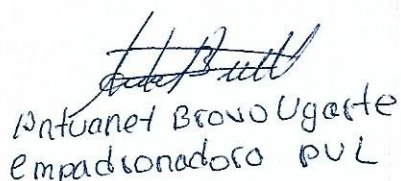 Antuanet Bravo Ugarte
empadronadora PVL